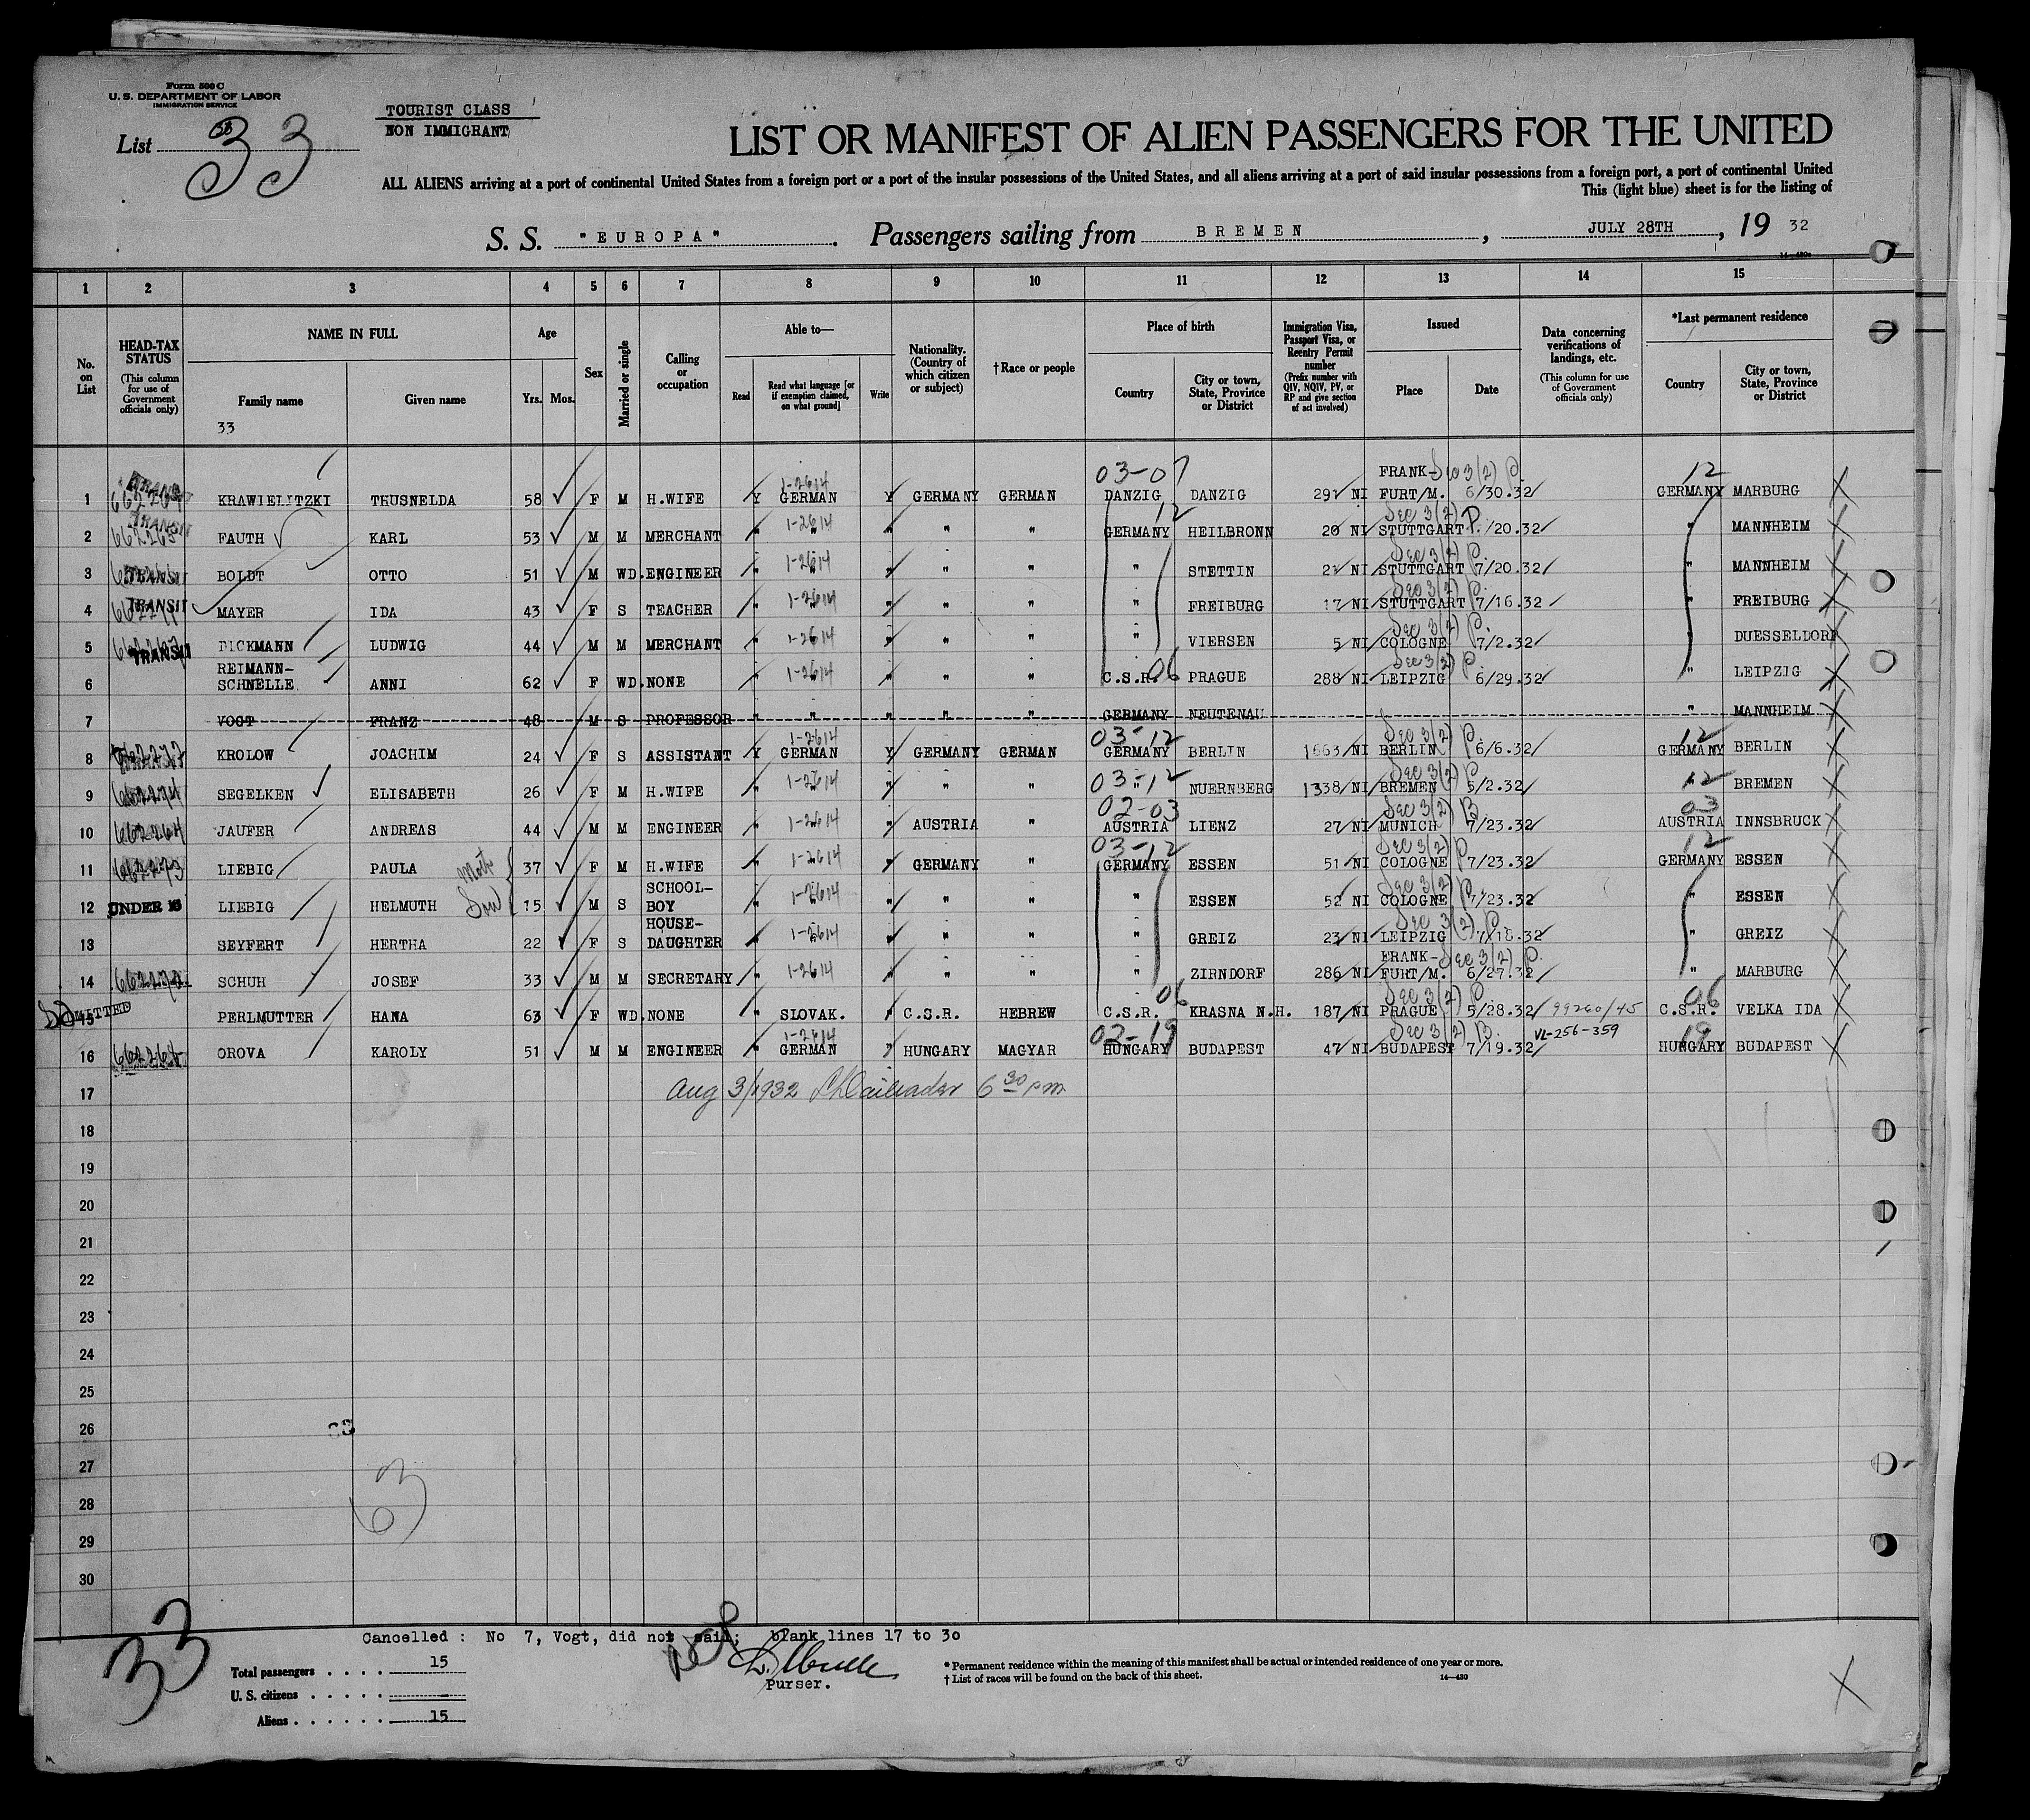 Form 500 C
U. S. DEPARTMENT OF LABOR
IMMIGRATION SERVICE
List 33
TOURIST CLASS
NON IMMIGRANT
LIST OR MANIFEST OF ALIEN PASSENGERS FOR THE UNITED
ALL ALIENS arriving at a port of continental United States from a foreign port or a port of the insular possessions of the United States, and all aliens arriving at a port of said insular possessions from a foreign port, a port of continental United
This (light blue) sheet is for the listing of
S. S. "EUROPA". Passengers sailing from BREMEN, JULY 28TH, 19 32
14—430a
1 2 3 4 5 6 7 8 9 10 11 12 13 14 15
No. on List
HEAD-TAX STATUS (This column for use of Government officials only)
NAME IN FULL
Family name
Given name
33
Age
Yrs. Mos.
Sex
Married or single
Calling or occupation
Able to—
Read
Read what language [or if exemption claimed, on what ground]
Write
Nationality. (Country of which citizen or subject)
†Race or people
Place of birth
Country
City or town, State, Province or District
Immigration Visa, Passport Visa, or Reentry Permit number (Prefix number with QIV, NQIV, PV, or RP and give section of act involved)
Issued
Place
Date
Data concerning verifications of landings, etc. (This column for use of Government officials only)
*Last permanent residence
Country
City or town, State, Province or District
03-07 FRANK- Sec 3(2) P 12
1 TRANSIT KRAWIELITZKI THUSNELDA 58 F M H.WIFE Y 1-2614 GERMAN Y GERMANY GERMAN DANZIG DANZIG 291 NI FURT/M. 6/30.32 GERMANY MARBURG
2 TRANSIT FAUTH KARL 53 M M MERCHANT " 1-2614 " " " " 12 GERMANY HEILBRONN 20 NI Sec 3(2) P. STUTTGART /20.32 " MANNHEIM
3 TRANSIT BOLDT OTTO 51 M WD. ENGINEER " 1-2614 " " " " " STETTIN 21 NI Sec 3(2) P. STUTTGART 7/20.32 " MANNHEIM
4 TRANSIT MAYER IDA 43 F S TEACHER " 1-2614 " " " " " FREIBURG 17 NI Sec 3(2) P. STUTTGART 7/16.32 " FREIBURG
5 TRANSIT DICKMANN LUDWIG 44 M M MERCHANT " 1-2614 " " " " " VIERSEN 5 NI Sec 3(2) P. COLOGNE 7/2.32 " DUESSELDORF
6 REIMANN-SCHNELLE ANNI 62 F WD. NONE " 1-2614 " " " " C.S.R. 06 PRAGUE 288 NI Sec 3(2) P. LEIPZIG 6/29.32 " LEIPZIG
7 VOGT FRANZ 48 M S PROFESSOR " " " " " GERMANY NEUTENAU " MANNHEIM
8 KROLOW JOACHIM 24 F S ASSISTANT Y 1-2614 GERMAN Y GERMANY GERMAN 03-12 GERMANY BERLIN 1663 NI Sec 3(2) P. BERLIN 6/6.32 12 GERMANY BERLIN
9 SEGELKEN ELISABETH 26 F M H.WIFE " 1-2614 " " " " 03-12 " NUERNBERG 1338 NI Sec 3(2) P BREMEN 5/2.32 12 " BREMEN
10 662264 JAUFER ANDREAS 44 M M ENGINEER " 1-2614 " " AUSTRIA " 02-03 AUSTRIA LIENZ 27 NI Sec 3(2) B MUNICH 7/23.32 03 AUSTRIA INNSBRUCK
11 662273 LIEBIG PAULA 37 F M H.WIFE " 1-2614 " GERMANY " 03-12 GERMANY ESSEN 51 NI Sec 3(2) P COLOGNE 7/23.32 12 GERMANY ESSEN
12 UNDER 16 LIEBIG HELMUTH Son 15 M S SCHOOL-BOY " 1-2614 " " " " " ESSEN 52 NI Sec 3(2) P. COLOGNE 7/23.32 " ESSEN
13 SEYFERT HERTHA 22 F S HOUSE-DAUGHTER " 1-2614 " " " " " GREIZ 23 NI Sec 3(2) P. LEIPZIG 7/18.32 " GREIZ
14 SCHUH JOSEF 33 M M SECRETARY " 1-2614 " " " " ZIRNDORF 286 NI FRANK- Sec 3(2) P. FURT/M. 6/27.32 " MARBURG
15 ADMITTED PERLMUTTER HANA 63 F WD. NONE " SLOVAK. " C.S.R. HEBREW 06 C.S.R. KRASNA N.H. 187 NI Sec 3(2) P PRAGUE 5/28.32 99260/45 06 C.S.R. VELKA IDA
16 OROVA KAROLY 51 M M ENGINEER " 1-2614 GERMAN " HUNGARY MAGYAR 02-19 HUNGARY BUDAPEST 47 NI Sec 3(2) B. BUDAPEST 7/19.32 VL-256-359 19 HUNGARY BUDAPEST
17 Aug 3/1932 6 30 pm
18
19
20
21
22
23
24
25
26
27
28
29
30
33
Cancelled : No 7, Vogt, did not sail; blank lines 17 to 30
Total passengers . . . . 15
U. S. citizens . . . . . —
Aliens . . . . . . 15
Purser.
* Permanent residence within the meaning of this manifest shall be actual or intended residence of one year or more.
† List of races will be found on the back of this sheet.
14—430